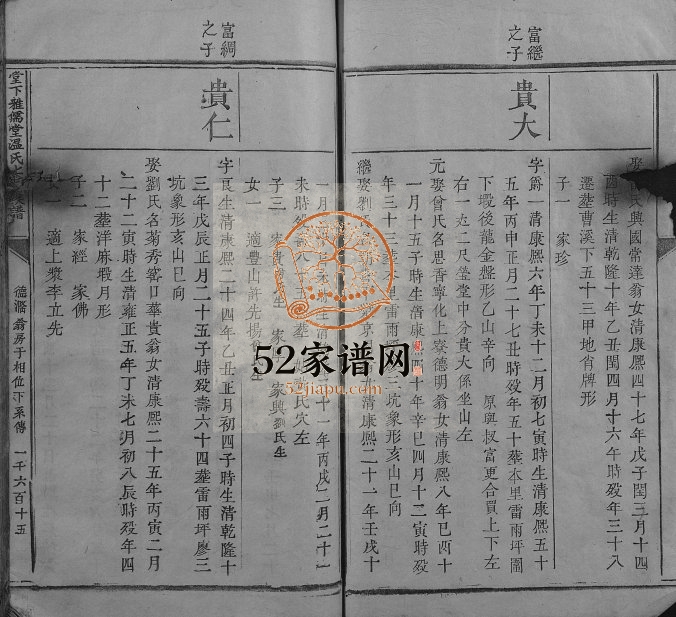 富繼
之子
貴大
娶 氏興國常達翁女清康熙四十七年戊子閏三月十四
酉時生清乾隆十年乙丑閏四月十六午時殁年三十八
遷塟曹溪下五十三甲地肖牌形
子一 家珍
字爵一清康熙六年丁未十二月初七寅時生清康熙五十
五年丙申正月二十七丑時殁年五十塟本里雷雨坪圖
下塅後龍金盤形乙山辛向 原與叔富更合買上下左
右一丈二尺塋堂中分貴大係坐山左
元娶曾氏名思香寧化上寮德明翁女清康熙八年己酉十
一月十五子時生清康熙 十年辛巳四月十二寅時殁
年三十三塟本里雷雨 三坑象形亥山巳向
繼娶劉氏 清康熙二十一年壬戌十
一月 十一年丙戌二月二十一
未時殁 氏穴左
子三 家貴 家 家興劉氏生
女一 適豐山許先楊 生
富綢
之子
貴仁
字良生清康熙二十四年乙丑正月初四子時生清乾隆十
三年戊辰正月二十五子時殁壽六十四塟雷雨坪廖三
坑象形亥山巳向
娶劉氏名菊秀 口華貴翁女清康熙二十五年丙寅二月
二十二寅時生清雍正五年丁未七月初八辰時殁年四
十二塟洋麻塅月形
子二 家經 家佛
女一 適上漿李立先
堂下雅儒堂溫氏 譜
德灑翁房于相位下系傳
一千六百十五
52家谱网
52jiapu.com